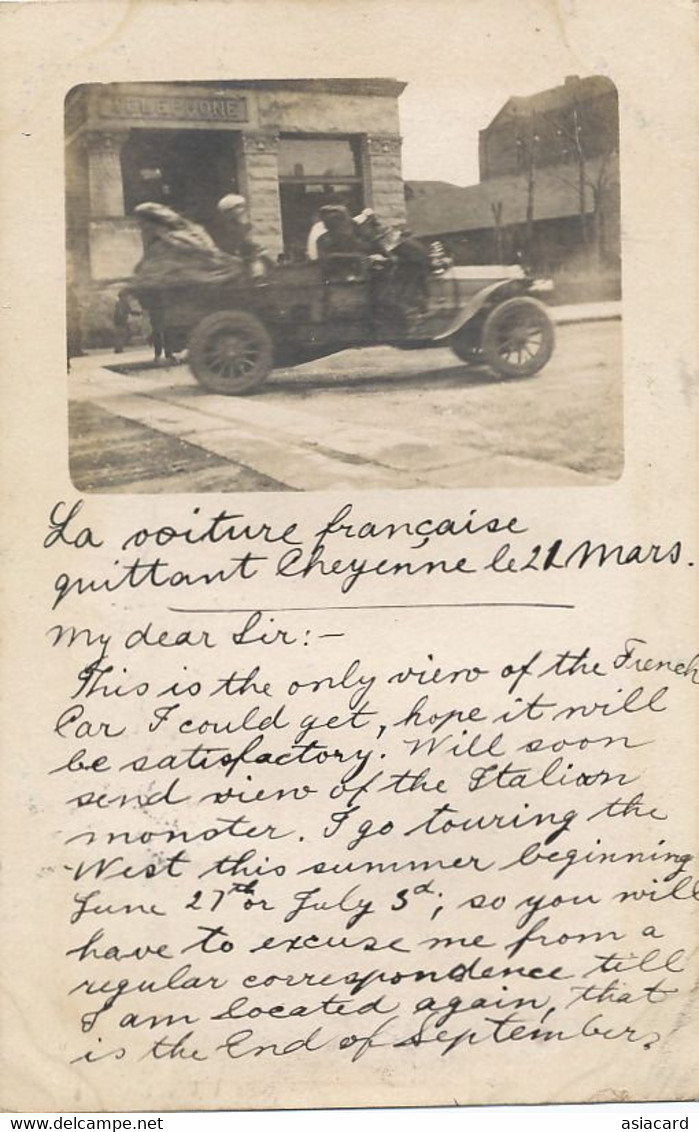 TELEPHONE
La voiture française
quittant Cheyenne le 21 Mars.
My dear Sir:—
This is the only view of the French
Car I could get, hope it will
be satisfactory. Will soon
send view of the Italian
monster. I go touring the
West this summer beginning
June 27th or July 3d; so you will
have to excuse me from a
regular correspondence till
I am located again, that
is the End of September.
asiacard